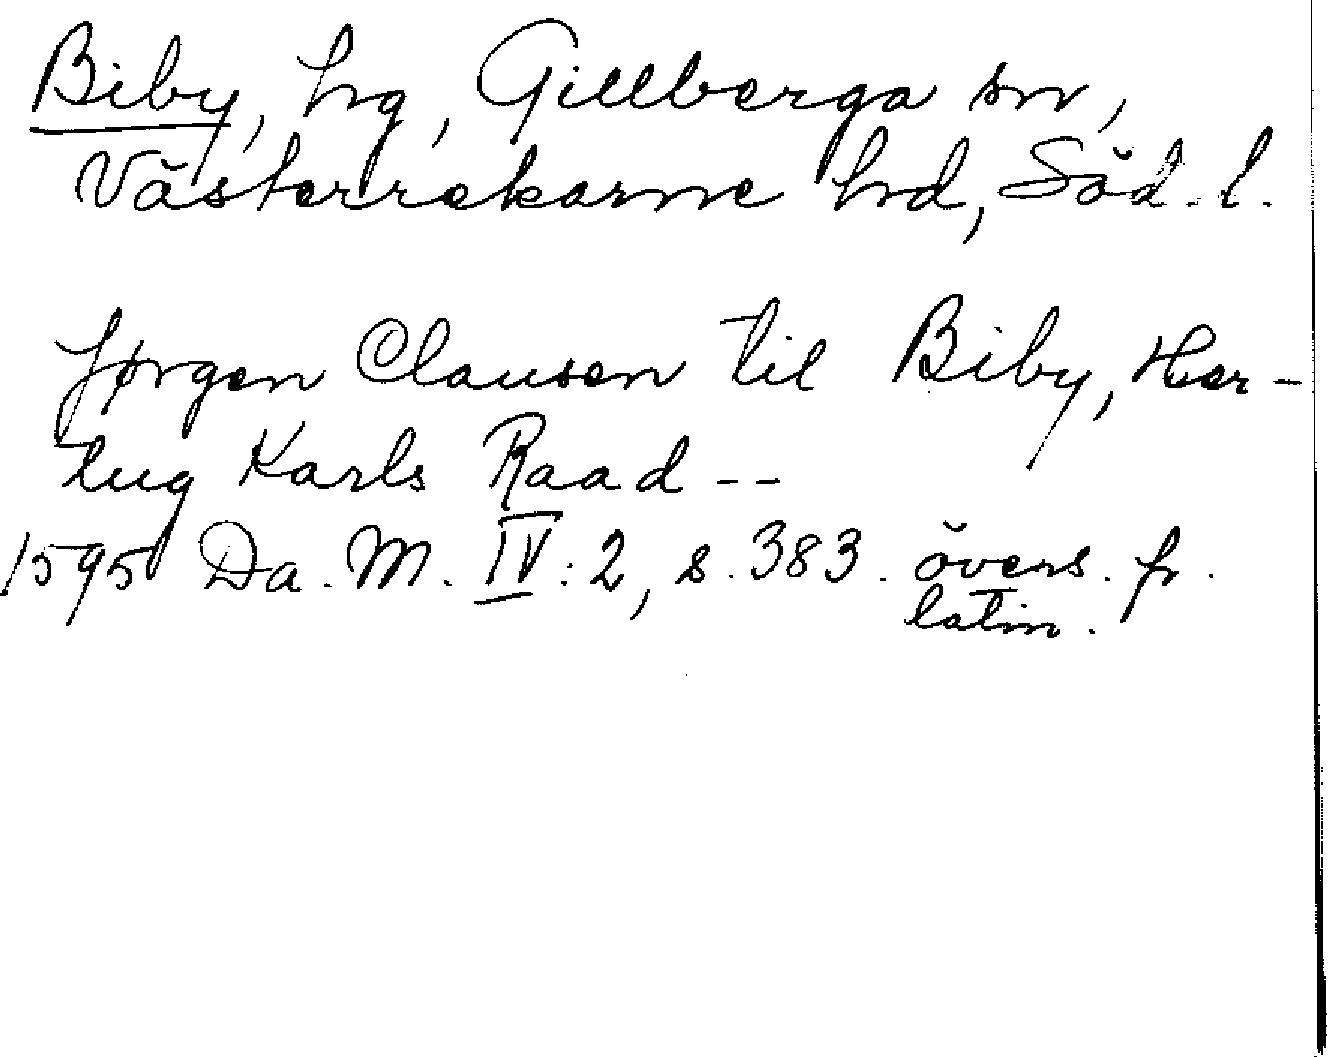 Biby, hg, Gillberga sn,
Västerrekarne hd, Söd. l.
Jørgen Clausen til Biby, Her-
tug Karls Raad --
1595 Da. M. IV: 2, s. 383. övers. fr.
latin.